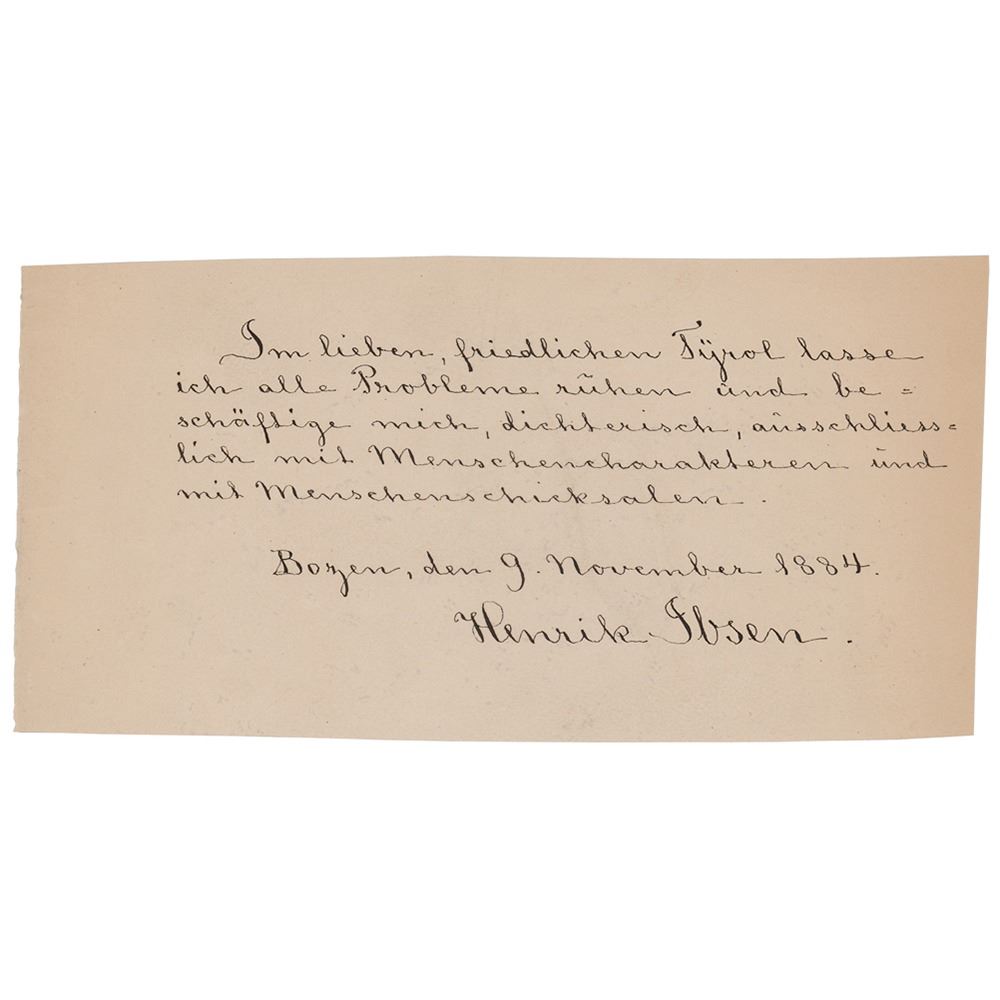 Im lieben, friedlichen Tÿrol lasse
ich alle Probleme ruhen und be=
schäftige mich, dichterisch, ausschliess=
lich mit Menschencharakteren und
mit Menschenschicksalen.
Bozen, den 9. November 1884.
Henrik Ibsen.